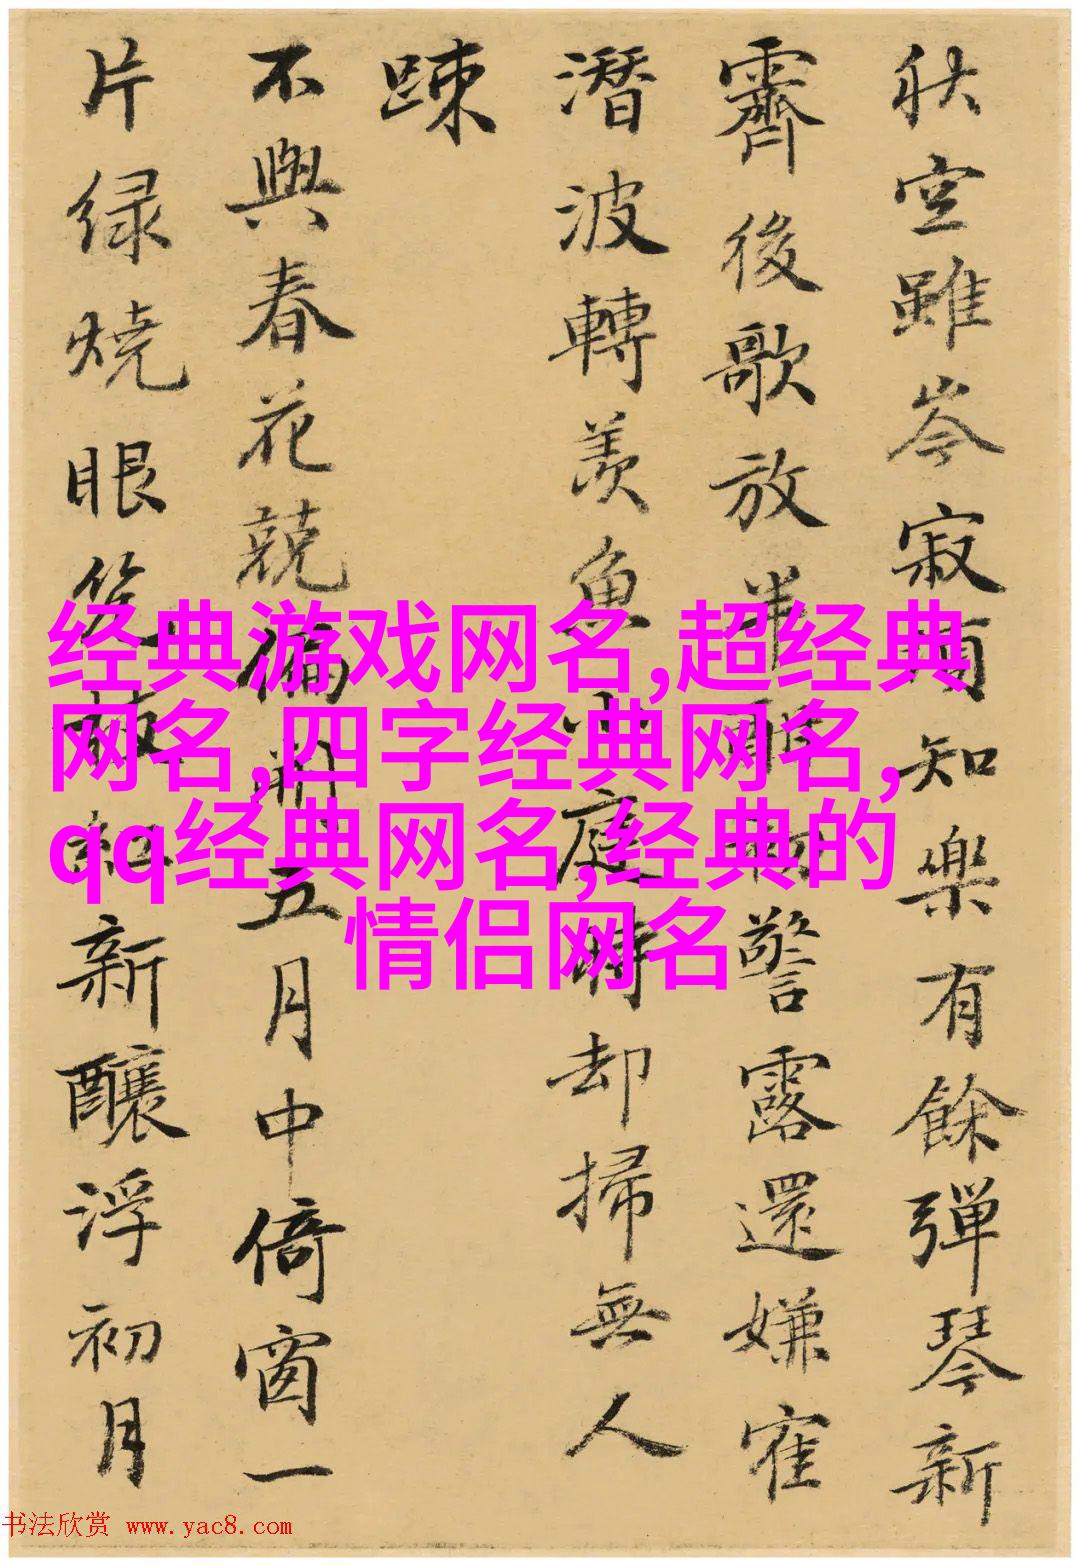 秋空雖岑寂知樂有餘彈琴新
霽後歌放初警露還嫌寉
潛波轉羨魚小庭時却掃無人
踈
不與春花競偏開五月中倚窗一
片緑燒眼枝紅新釀浮初月
经典游戏网名,超经典
网名,四字经典网名,
qq经典网名,经典的
情侣网名
书法欣赏 www.yac8.com